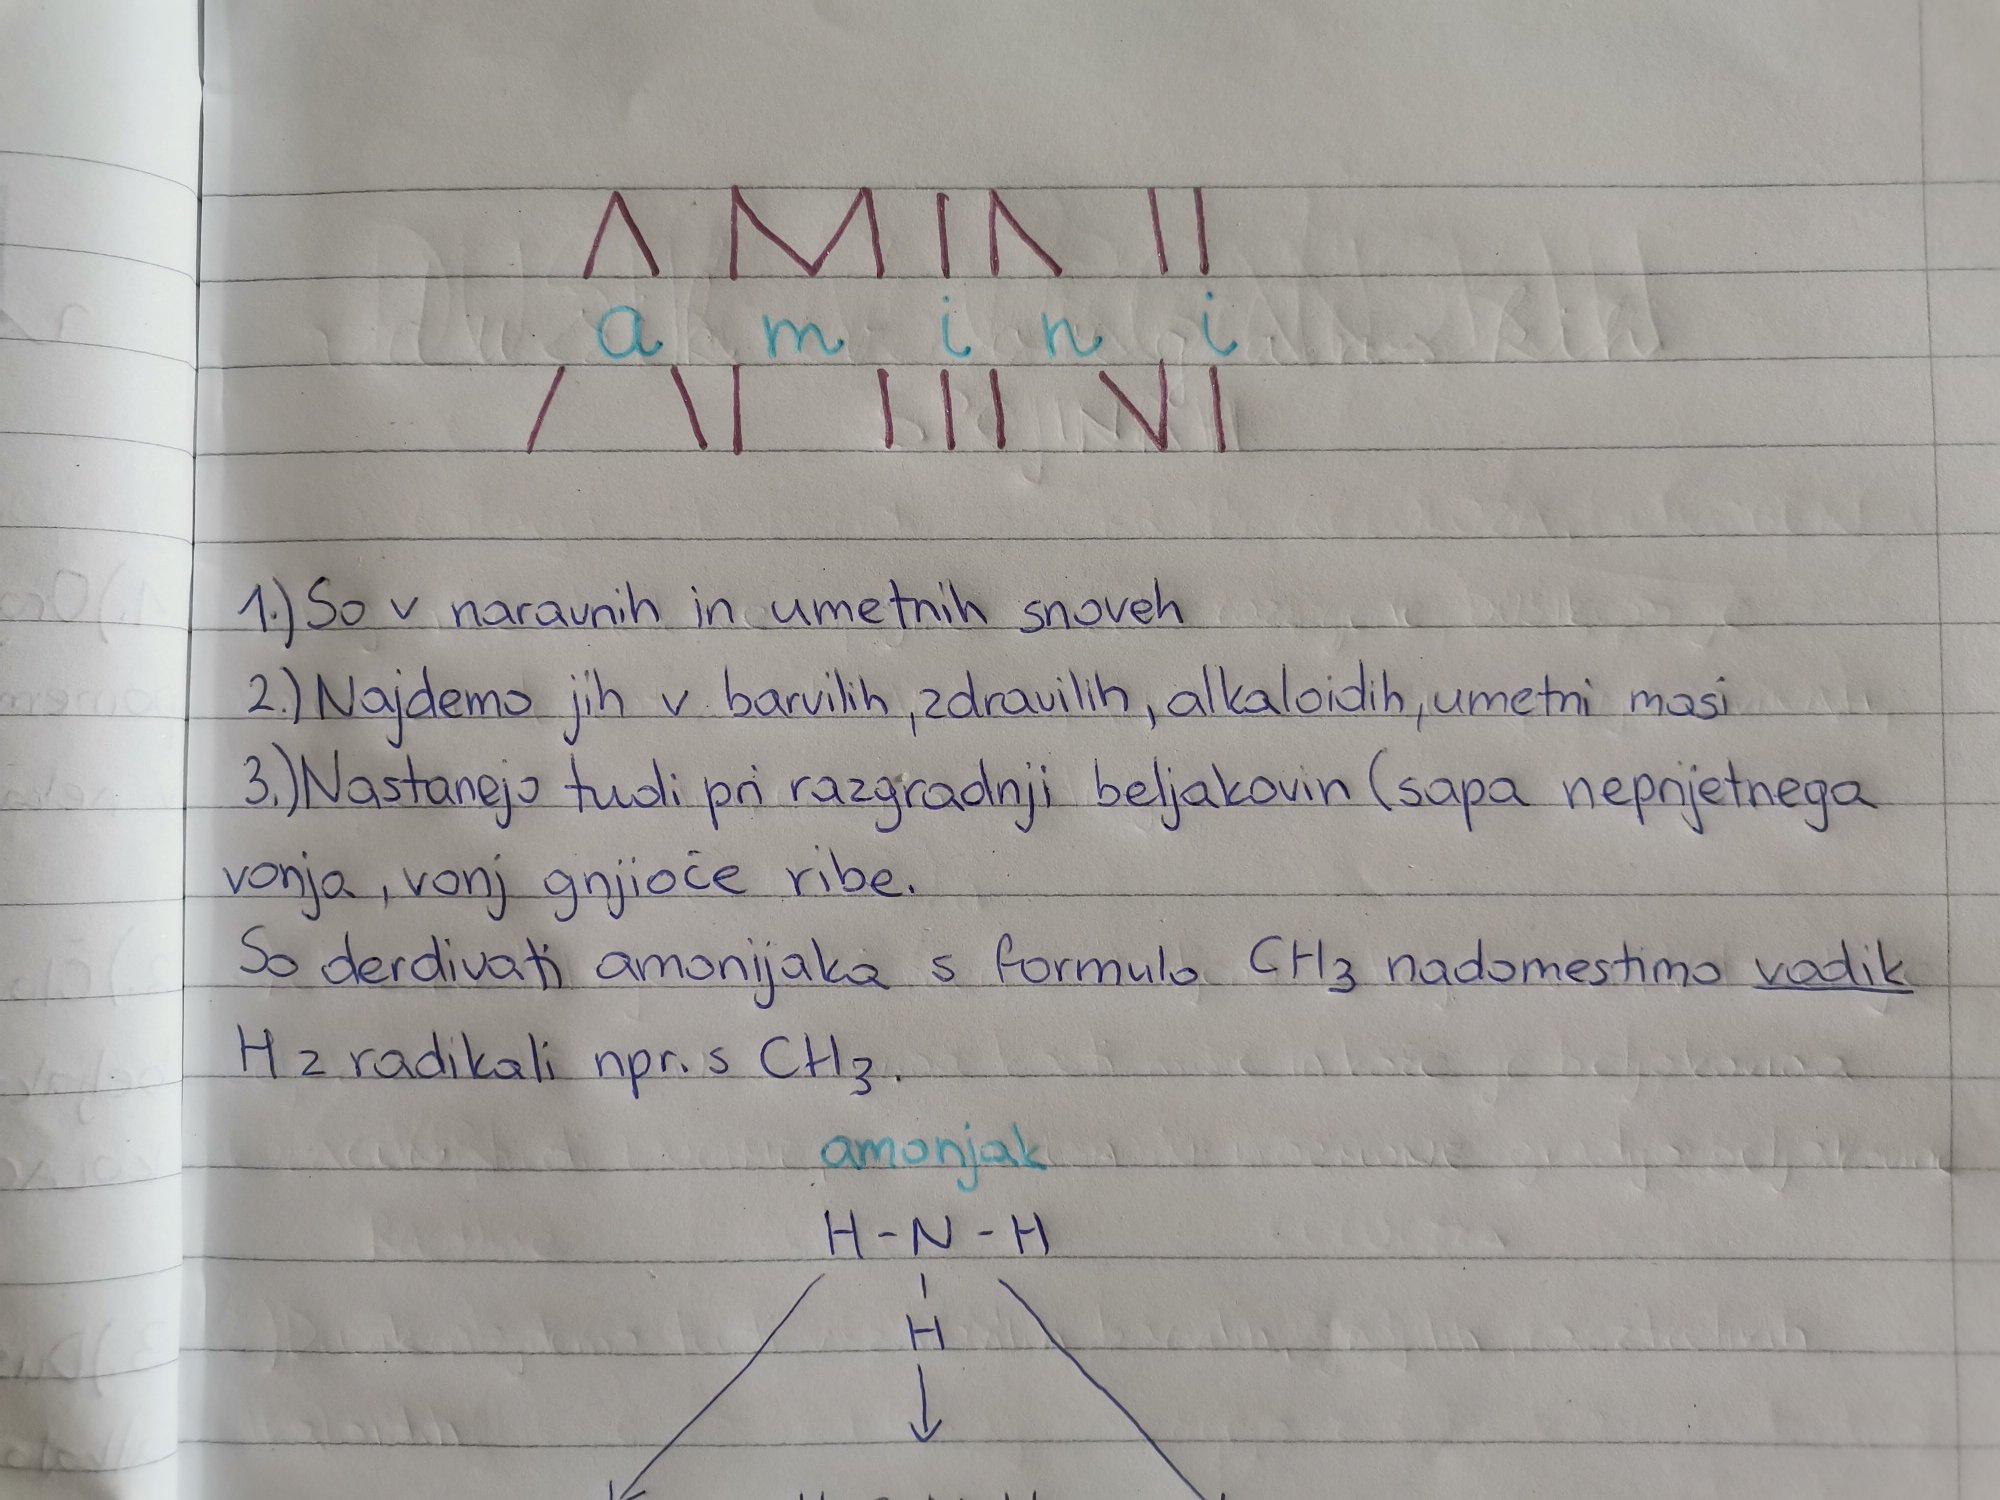 AMINI
amini
1.) So v naravnih in umetnih snoveh
2.) Najdemo jih v barvilih, zdravilih, alkaloidih, umetni masi
3.) Nastanejo tudi pri razgradnji beljakovin (sapa neprijetnega
vonja, vonj gnjioče ribe.
So derdivati amonijaka s formulo CH3 nadomestimo vodik
H z radikali npr. s CH3.
amonjak
H-N-H
H